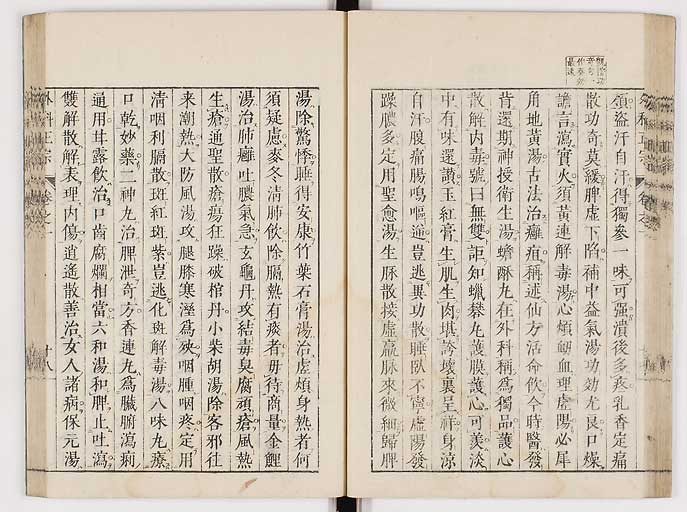 須盜汗自汗得獨參一味可強潰後多疼乳香定痛
散功奇莫緩脾虛下陷補中益氣湯功効尤良口燥
譫言瀉實火須黃連解毒湯心煩衄血理虛陽必犀
角地黃湯古法治癰疽稱述仙方活命飲今時醫發
背還期神授衛生湯蟾酥丸在外科稱爲獨品護心
散解內毒號曰無雙詎知蠟礬丸護膜護心可美淡
中有味還讚玉紅膏生肌生肉琪誇壞裏呈祥身涼
自汗腹痛腸鳴嘔逆豈逃異功散睡臥不寧虛陽發
躁膿多定用聖愈湯生脈散接虛羸脈來微細歸脾
湯除驚悸睡得安康竹葉石膏湯治虛煩身熱者何
須疑慮麥冬清肺飲除膈熱有痰者毋待商量金鯉
湯治肺癰吐膿氣急玄龜丹攻結毒臭腐頑瘡風熱
生瘡通聖散瘡瘍狂躁破棺丹小柴胡湯除客邪往
来潮熱大防風湯攻腿膝寒溼爲殃咽腫咽疼定用
清咽利膈散斑紅斑紫豈逃化斑解毒湯八味丸療
口乾妙藥二神丸治脾泄奇方香連丸爲臟腑瀉痢
通用甘露飲治口齒腐爛相當六和湯和脾止吐瀉
雙解散解表理內傷逍遙散善治女人諸病保元湯
外科正宗
卷之一
十八